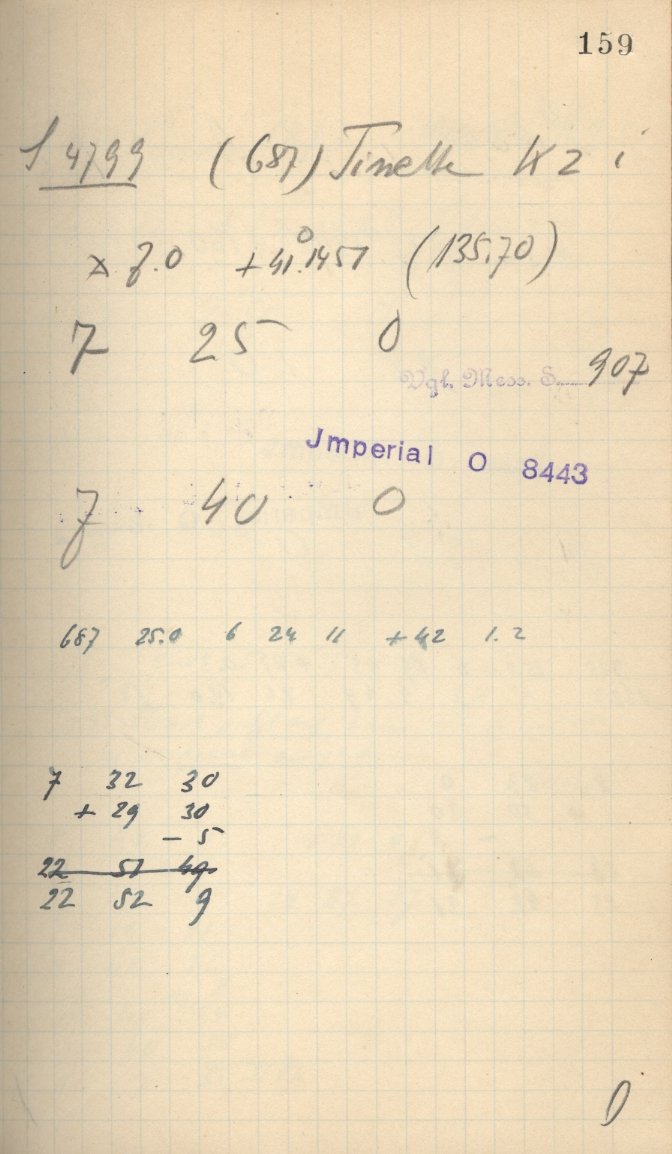 159
4799 (687) Tinette Kz i
x 7.0 +41°.1451 (135.70)
7 25 0
Vgl. Mess. S. 907
Jmperial O 8443
7 40 0
687 25.0 6 24 11 +42 1.2
7 32 30
+ 29 30
- 5
22 51 49
22 52 9